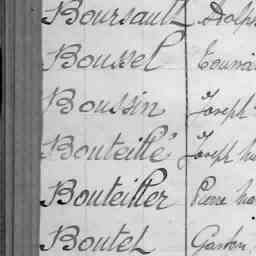 Boursault Adolph
Boussel
Boussin Joseph
Bouteillé Joseph
Bouteiller Pierre
Boutel Gaston